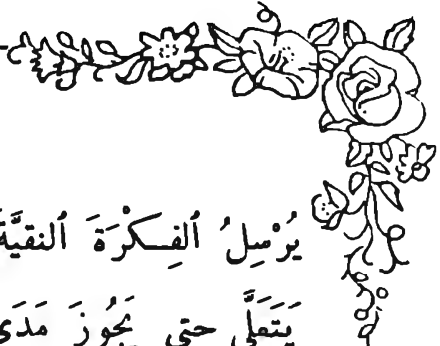 يُرْسِلُ ٱلفِكْرَةَ ٱلنقيَّةَ
يَتَعَلَّى حتى يَجُوزَ مَدَى